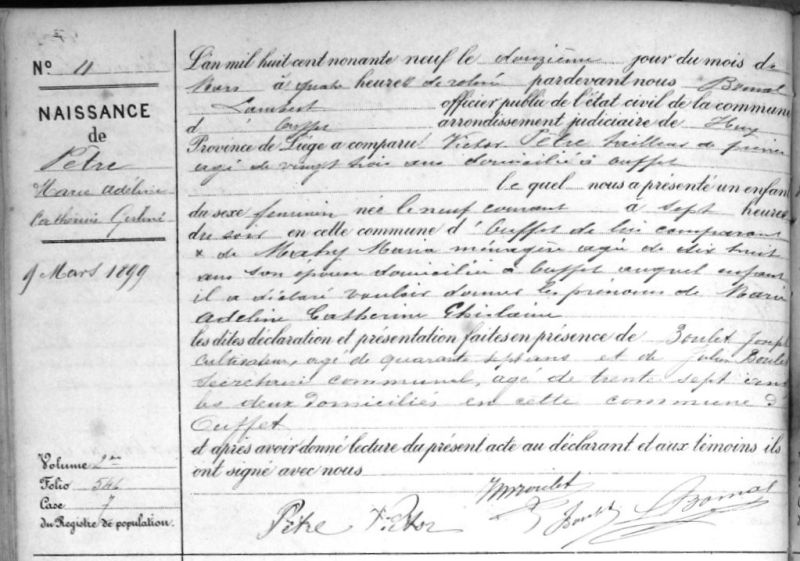 N° 11
NAISSANCE
de
Pètre
Marie Adéline
Catherine Ghisl.
9 Mars 1899
Volume 2me
Folio 546
Case 7
du Registre de population.
L'an mil huit cent nonante neuf le douzième jour du mois de
Mars à quatre heures de relevée pardevant nous Bomal
Lambert officier public de l'état civil de la commune
d' Ouffet arrondissement judiciaire de Huy
Province de Liége a comparu Victor Pètre tailleur de pierres
agé de vingt trois ans domicilié à Ouffet
lequel nous a présenté un enfant
du sexe feminin née le neuf courant à sept heures
du soir en cette commune d'Ouffet de lui comparant
& de Mathy Maria ménagère agée de dix huit
ans son épouse domiciliée à Ouffet auquel enfant
il a déclaré vouloir donner les prénoms de Marie
Adeline Catherine Ghislaine
les dites déclaration et présentation faites en présence de Boulet Joseph
cultivateur, agé de quarante sept ans et de Julien Boulet
secrétaire communal, agé de trente sept ans
les deux domiciliés en cette commune d'
Ouffet
et après avoir donné lecture du présent acte au déclarant et aux témoins ils
ont signé avec nous
Pètre Victor
J Boulet
L Bomal